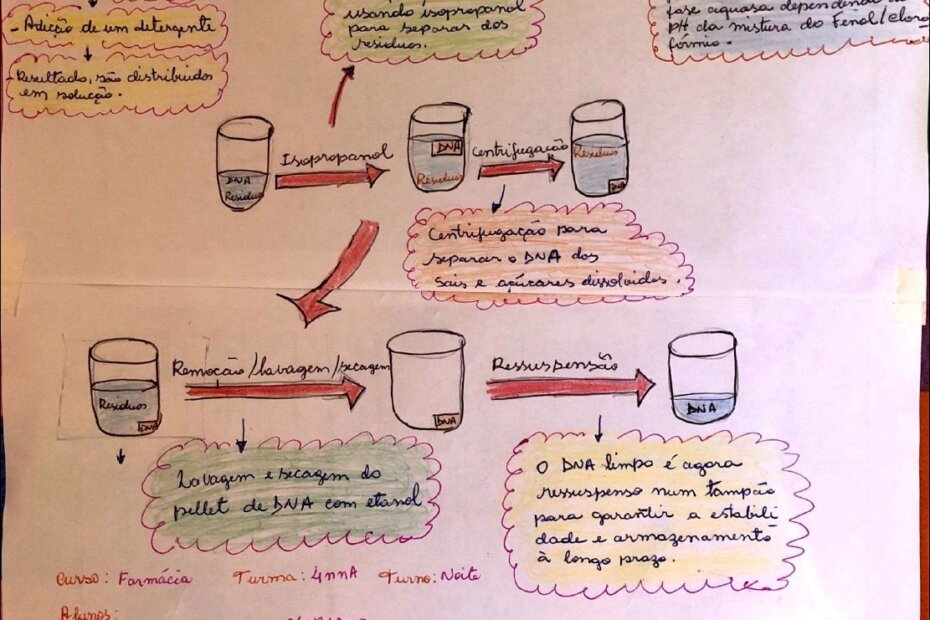 - Adição de um detergente
- Resultado, são distribuidos
em solução.
usando isopropanol
para separar dos
residuos.
fase aquosa dependendo
pH da mistura do Fenol/cloro
fórmio.
DNA
Residuos
Isopropanol
DNA
Residuos
Centrifugação
Residuos
DNA
Centrifugação para
separar o DNA dos
sais e açúcares dissolvidos.
Residuos
DNA
Remoção/lavagem/secagem
DNA
Ressuspensão
DNA
Lavagem e secagem do
pellet de DNA com etanol
O DNA limpo é agora
ressuspenso num tampão
para garantir a estabili
dade e armazenamento
à longo prazo.
Curso: Farmácia Turma: 4NNA Turno: Noite
Alunos: